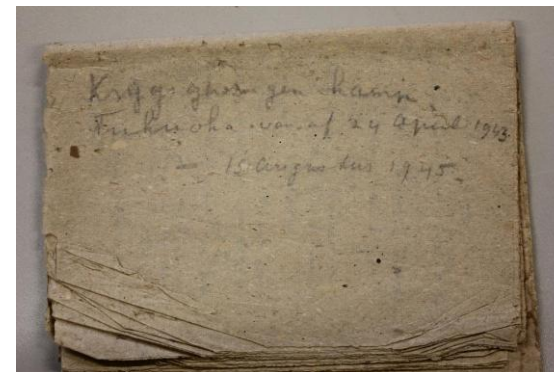 Krijgsgevangen kamp
Fukuoka vanaf 24 April 1943
— 15 Augustus 1945.